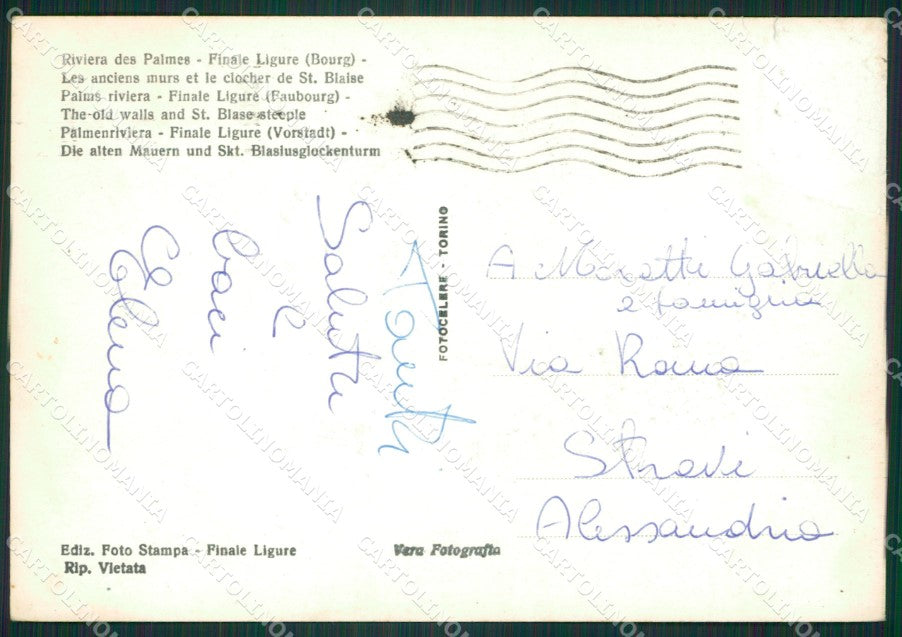 Riviera des Palmes - Finale Ligure (Bourg) -
Les anciens murs et le clocher de St. Blaise
Palms riviera - Finale Ligure (Faubourg) -
The old walls and St. Blase steeple
Palmenriviera - Finale Ligure (Vorstadt) -
Die alten Mauern und Skt. Blasiusglockenturm
Tanti
Saluti
e
baci
Elena
FOTOCELERE - TORINO
A Moratti Gabriella
e famiglia
Via Roma
Strevi
Alessandria
Ediz. Foto Stampa - Finale Ligure
Rip. Vietata
Vera Fotografia
CARTOLINOMANIA